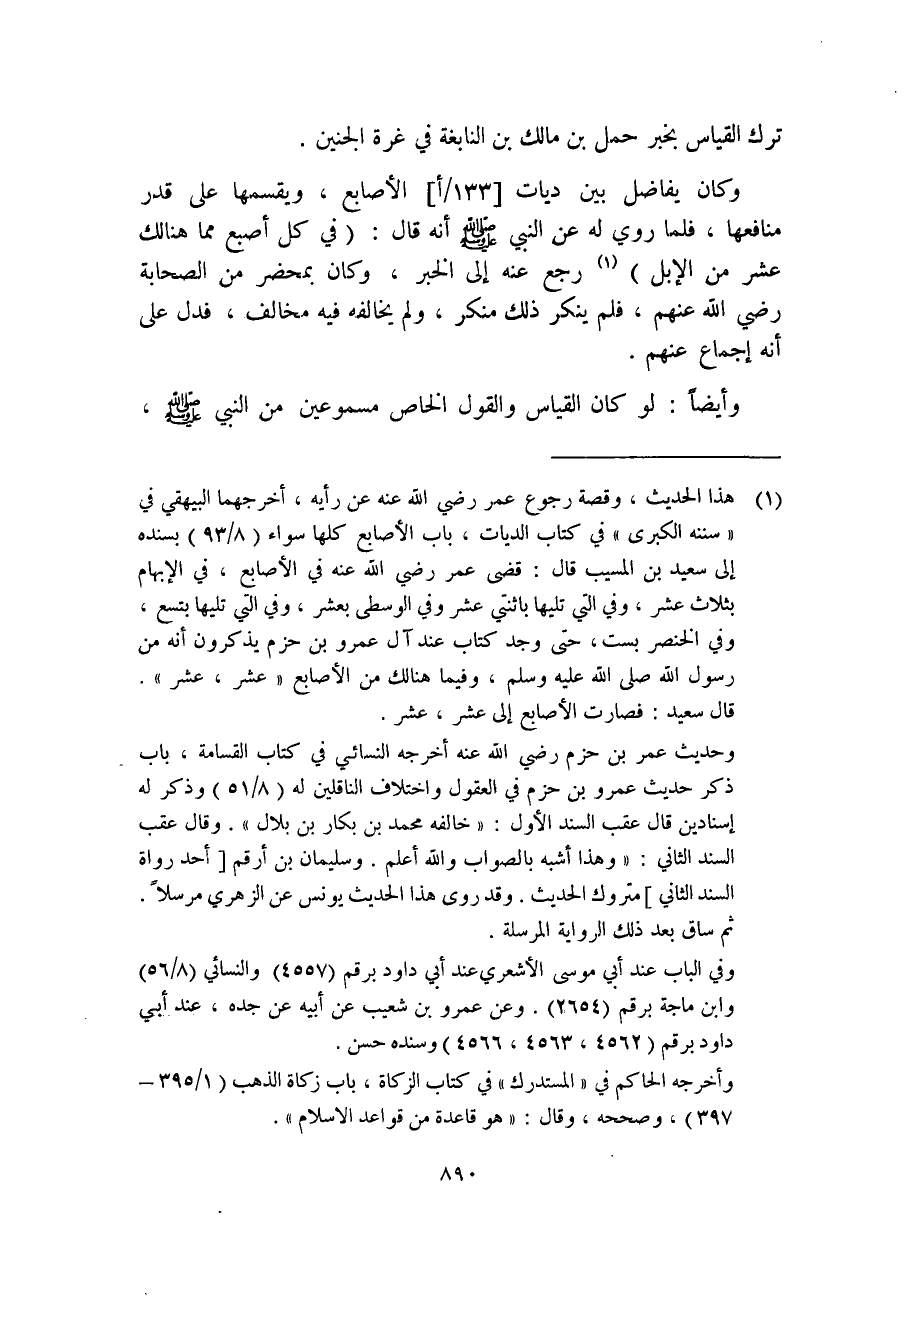 ترك القياس بخبر حمل بن مالك بن النابغة في غرة الجنين .
وكان يفاضل بين ديات [١٣٣/أ] الأصابع ، ويقسمها على قدر
منافعها ، فلما روي له عن النبي ﷺ أنه قال : ( في كل أصبع مما هنالك
عشر من الإبل ) (١) رجع عنه إلى الخبر ، وكان بمحضر من الصحابة
رضي الله عنهم ، فلم ينكر ذلك منكر ، ولم يخالفه فيه مخالف ، فدل على
أنه إجماع عنهم .
وأيضاً : لو كان القياس والقول الخاص مسموعين من النبي ﷺ ،
(١) هذا الحديث ، وقصة رجوع عمر رضي الله عنه عن رأيه ، أخرجهما البيهقي في
« سننه الكبرى » في كتاب الديات ، باب الأصابع كلها سواء ( ٩٣/٨ ) بسنده
إلى سعيد بن المسيب قال : قضى عمر رضي الله عنه في الأصابع ، في الإبهام
بثلاث عشر ، وفي التي تليها باثنتي عشر وفي الوسطى بعشر ، وفي التي تليها بتسع ،
وفي الخنصر بست ، حتى وجد كتاب عند آل عمرو بن حزم يذكرون أنه من
رسول الله صلى الله عليه وسلم ، وفيما هنالك من الأصابع « عشر ، عشر » .
قال سعيد : فصارت الأصابع إلى عشر ، عشر .
وحديث عمر بن حزم رضي الله عنه أخرجه النسائي في كتاب القسامة ، باب
ذكر حديث عمرو بن حزم في العقول واختلاف الناقلين له ( ٥١/٨ ) وذكر له
إسنادين قال عقب السند الأول : « خالفه محمد بن بكار بن بلال » . وقال عقب
السند الثاني : « وهذا أشبه بالصواب والله أعلم . وسليمان بن أرقم [ أحد رواة
السند الثاني ] متروك الحديث . وقد روى هذا الحديث يونس عن الزهري مرسلاً .
ثم ساق بعد ذلك الرواية المرسلة .
وفي الباب عند أبي موسى الأشعري عند أبي داود برقم (٤٥٥٧) والنسائي (٥٦/٨)
وابن ماجة برقم (٢٦٥٤) . وعن عمرو بن شعيب عن أبيه عن جده ، عند أبي
داود برقم ( ٤٥٦٢ ، ٤٥٦٣ ، ٤٥٦٦ ) وسنده حسن .
وأخرجه الحاكم في « المستدرك » في كتاب الزكاة ، باب زكاة الذهب ( ٣٩٥/١ –
٣٩٧ ) ، وصححه ، وقال : « هو قاعدة من قواعد الاسلام » .
٨٩٠